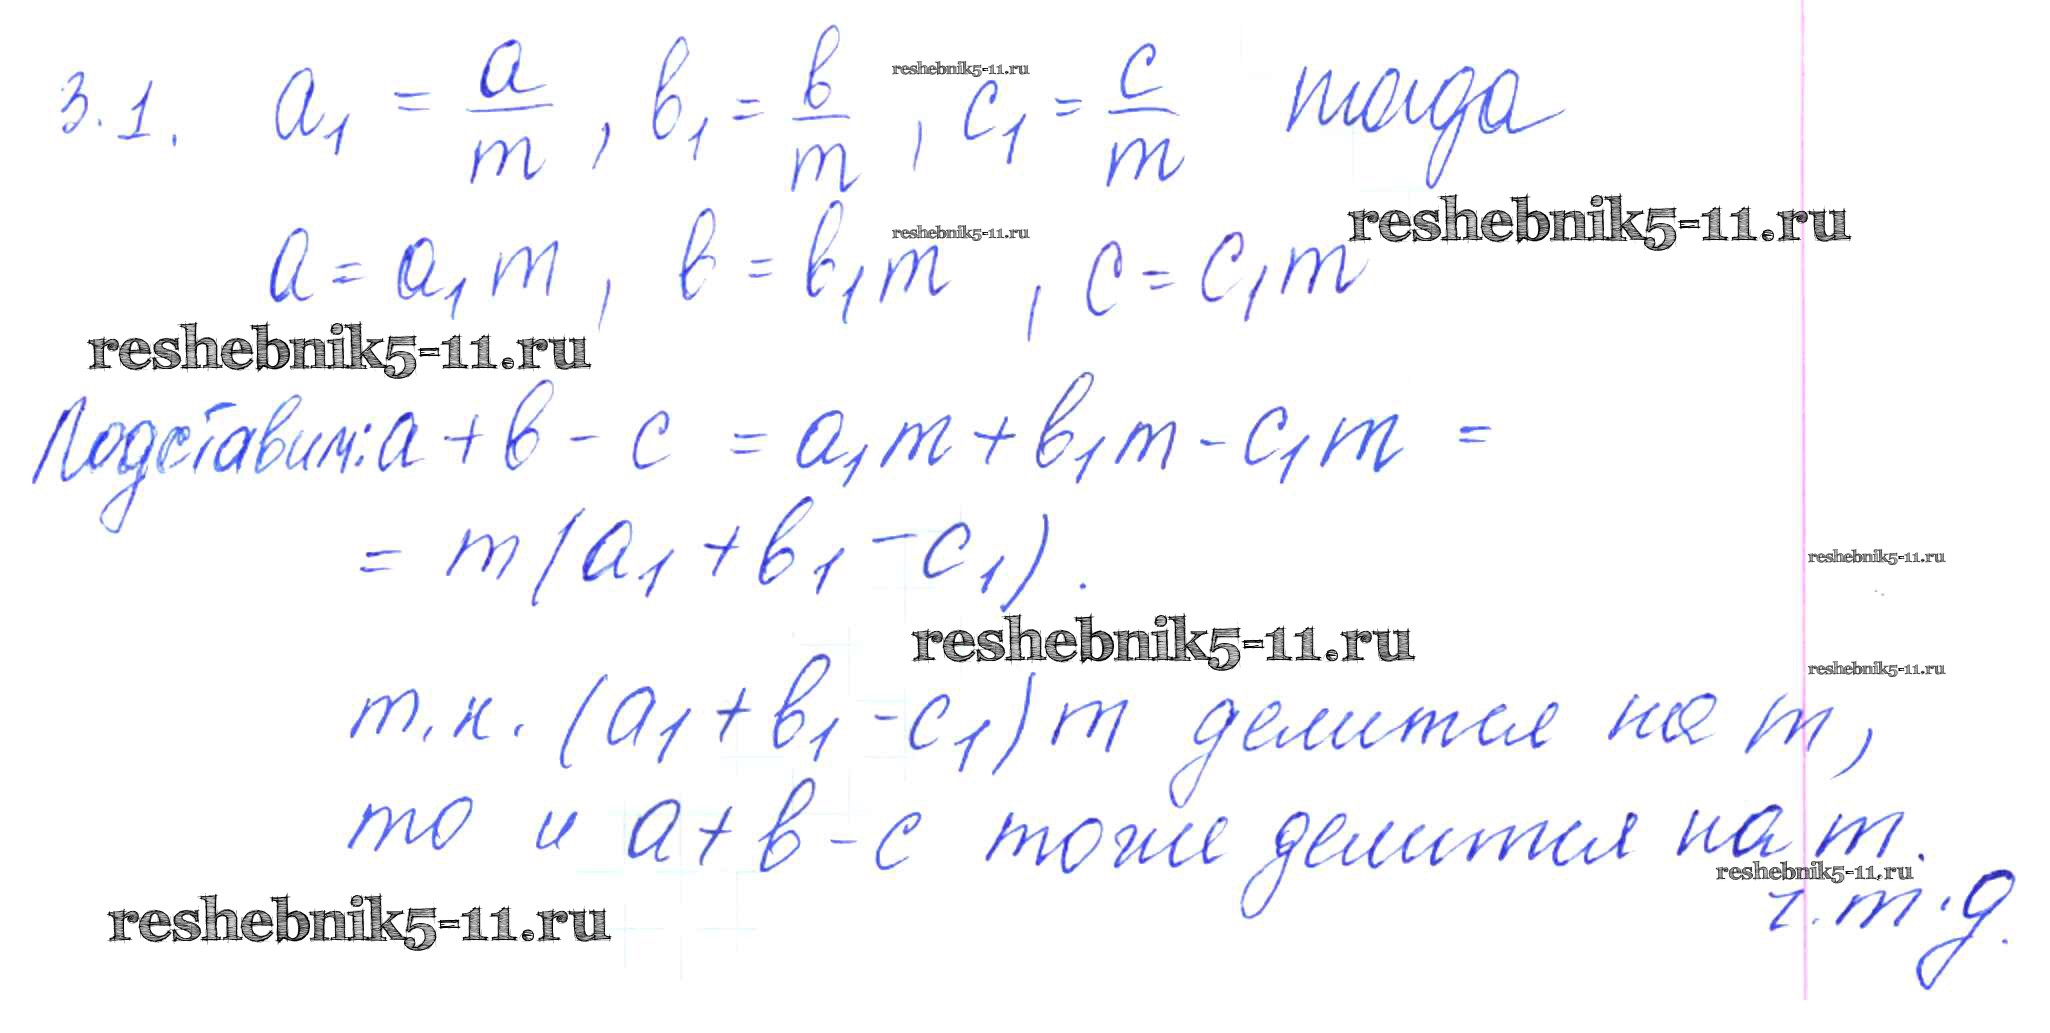 3.1. a₁ = a/m, в₁ = в/m, с₁ = с/m тогда
reshebnik5-11.ru
a = a₁m, в = в₁m, с = с₁m
reshebnik5-11.ru
reshebnik5-11.ru
reshebnik5-11.ru
Подставим: a + в - с = a₁m + в₁m - с₁m =
= m(a₁ + в₁ - с₁).
reshebnik5-11.ru
reshebnik5-11.ru
reshebnik5-11.ru
т.к. (a₁ + в₁ - с₁)m делится на m,
то и a + в - с тоже делится на m.
reshebnik5-11.ru
ч.т.д.
reshebnik5-11.ru